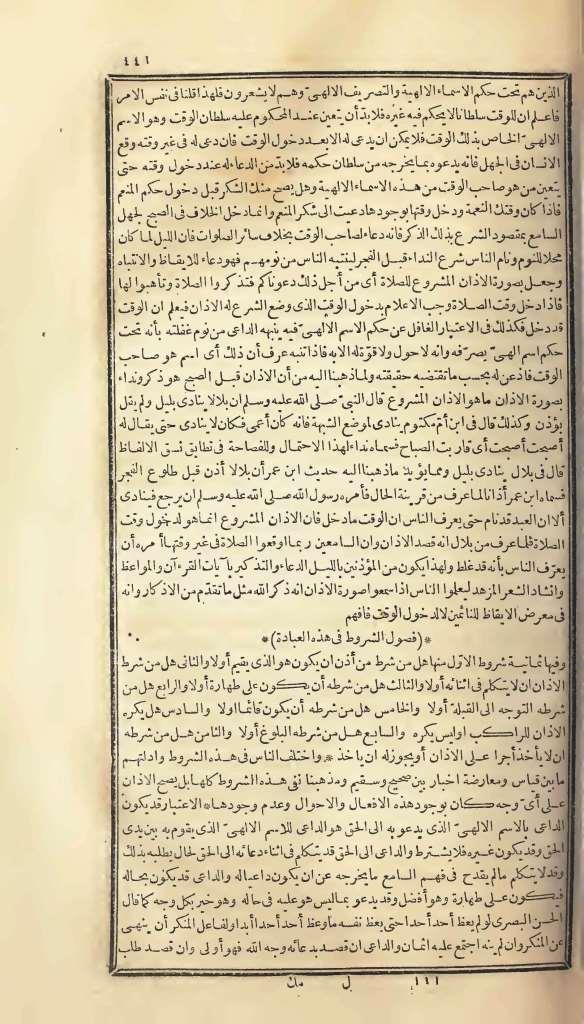 ٤٤١
الذين هم تحت حكم الاسماء الالهية والتصريف الالهىّ وهم لا يشعرون فلهذا قلنا فى نفس الامر
فاعلم ان للوقت سلطانا لا يحكم فيه غيره فلابدّ أن يتعين عند المحكوم عليه سلطان الوقت وهو الاسم
الالهىّ الخاص بذلك الوقت فلا يمكن ان يدعى له الا بعد دخول الوقت فان دعى له فى غير وقته وقع
الانسان فى الجهل فانه يدعوه بما يخرجه من سلطان حكمه فلابدّ من الدعاء له عند دخول وقته حتى
يتعين من هو صاحب الوقت من هذه الاسماء الالهية وهل يصح منك الشكر قبل دخول حكم المنعم
فاذا كان وقتك النعمة ودخل وقتها بوجودها دعيت الى شكر المنعم وانما دخل الخلاف فى الصبح لجهل
السامع بمقصود الشرع بذلك الذكر فانه دعاء لصاحب الوقت بخلاف سائر الصلوات فان الليل لما كان
محلا للنوم ونام الناس شرع النداء قبل الفجر لينتبه الناس من نومهم فهو دعاء للايقاظ والانتباه
وجعل بصورة الاذان المشروع للصلاة أى من أجل ذلك دعوناكم فتذكروا الصلاة وتأهبوا لها
فاذا دخل وقت الصلاة وجب الاعلام بدخول الوقت الذى وضع الشرع له الاذان فيعلم ان الوقت
قد دخل فكذلك فى الاعتبار الغافل عن حكم الاسم الالهىّ فيه ينبهه الداعى من نوم غفلته بأنه تحت
حكم اسم الهىّ يصرّفه وانه لا حول ولا قوّة له الا به فاذا تنبه عرف أن ذلك أى اسم هو صاحب
الوقت فاذعن له بحسب ما تقتضيه حقيقته ولما ذهبنا اليه من أن الاذان قبل الصبح هو ذكر ونداء
بصورة الاذان ما هو الاذان المشروع قال النبىّ صلى الله عليه وسلم ان بلالا ينادى بليل ولم يقل
يؤذن وكذلك قال فى ابن أمّ مكتوم ينادى لموضع الشبهة فانه كان أعمى فكان لا ينادى حتى يقال له
أصبحت أصبحت أى قاربت الصباح فسماه نداء لهذا الاحتمال وللفصاحة فى تطابق نسق الالفاظ
قال فى بلال ينادى بليل ومما يؤيد ما ذهبنا اليه حديث ابن عمر أن بلالا أذن قبل طلوع الفجر
فسماه ابن عمر أذانا لما عرف من قرينة الحال فأمره رسول الله صلى الله عليه وسلم ان يرجع فينادى
ألا ان العبد قد نام حتى يعرف الناس ان الوقت ما دخل فان الاذان المشروع انما هو لدخول وقت
الصلاة فلما عرف من بلال انه قصد الاذان وان السامعين ربما أوقعوا الصلاة فى غير وقتها أمره أن
يعرّف الناس بأنه قد غلط ولهذا يكون من المؤذنين بالليل الدعاء والتذكير بآيات القرءآن والمواعظ
وانشاد الشعر المزهد ليعلموا الناس اذا سمعوا صورة الاذان انه ذكر الله مثل ما تقدّم من الاذكار وانه
فى معرض الايقاظ للنائمين لا لدخول الوقت فافهم
*(فصول الشروط فى هذه العبادة)*
وفيها ثمانية شروط الاوّل منها هل من شرط من أذن ان يكون هو الذى يقيم أولا والثانى هل من شرط
الاذان ان لا يتكلم فى اثنائه أولا والثالث هل من شرطه أن يكون على طهارة أولا والرابع هل من
شرطه التوجه الى القبلة أولا والخامس هل من شرطه أن يكون قائما اولا والسادس هل يكره
الاذان للراكب اوليس يكره والسابع هل من شرطه البلوغ أولا والثامن هل من شرطه
ان لا يأخذ أجرا على الاذان أو يجوز له ان يأخذ * واختلف الناس فى هذه الشروط وادلتهم
ما بين قياس ومعارضة اخبار بين صحيح وسقيم ومذهبنا نفى هذه الشروط كلها بل يصح الاذان
على أىّ وجه كان بوجود هذه الافعال والاحوال وعدم وجودها * الاعتبار قد يكون
الداعى بالاسم الالهىّ الذى يدعو به الى الحق هو الداعى للاسم الالهىّ الذى يقوم به بين يدى
الحق وقد يكون غيره فلا يشترط والداعى الى الحق قد يتكلم فى اثناء دعائه الى الحق لحال يطلبه بذلك
وقد لا يتكلم ما لم يقدح فى فهم السامع ما يخرجه عن ان يكون داعيا له والداعى قد يكون بحاله
فيكون على طهارة وهو أفضل وقد يدعو بما ليس هو عليه فى حاله وهو خير بكل وجه كما قال
الحسن البصرى لو لم يعظ أحد أحدا حتى يعظ نفسه ما وعظ أحد أحدا أبدا ولفاعل المنكر أن ينهى
عن المنكر وان لم ينه اجتمع عليه اثمان والداعى ان قصد بدعائه وجه الله فهو أولى وان قصد طلب
١١١ ل مك